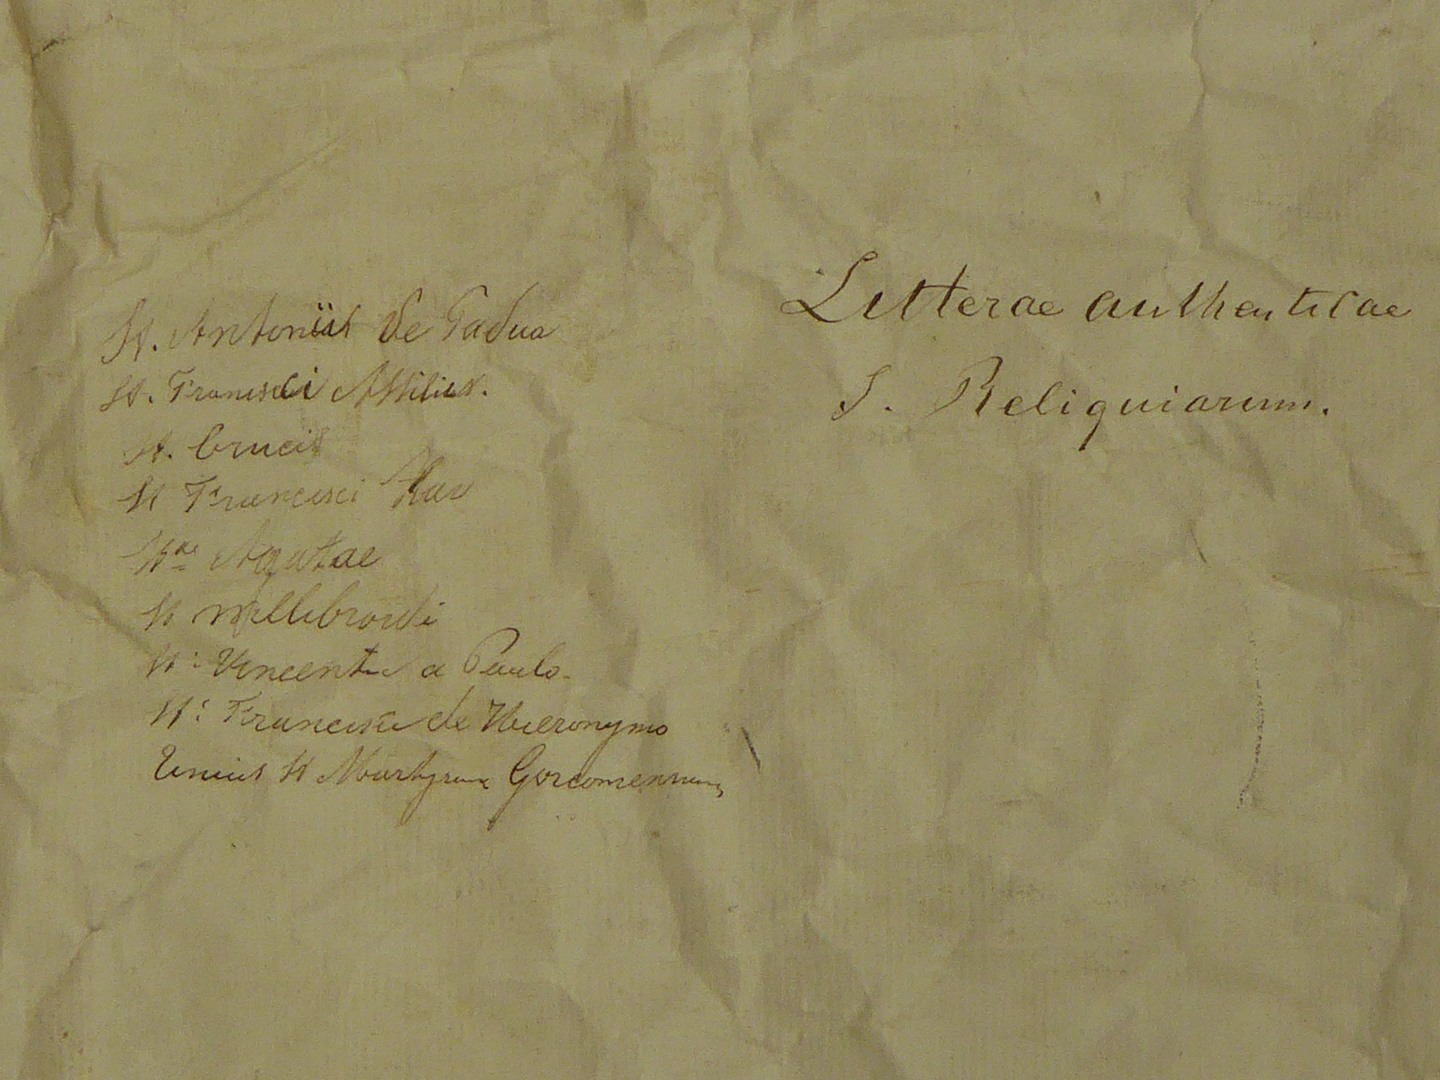 St. Antonii de Padua
St. Francisci Assisii.
St. Crucis
St Francisci Xav
Stae Agatae
St Willibrordi
St: Vincentii a Paulo.
St: Francisci de Hieronymo
Unius St Martyrum Gorcomensium
Litterae authenticae
S. Reliquiarum.